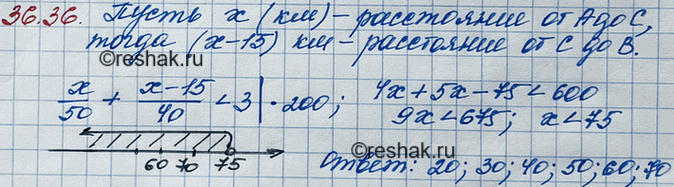 36.36. Пусть x (км) - расстояние от A до C,
тогда (x-15) км - расстояние от C до B.
x/50 + (x-15)/40 < 3 | · 200; 4x + 5x - 75 < 600
9x < 675; x < 75
60 70 75
Ответ: 20; 30; 40; 50; 60; 70
©Reshak.ru
©Reshak.ru
©Reshak.ru